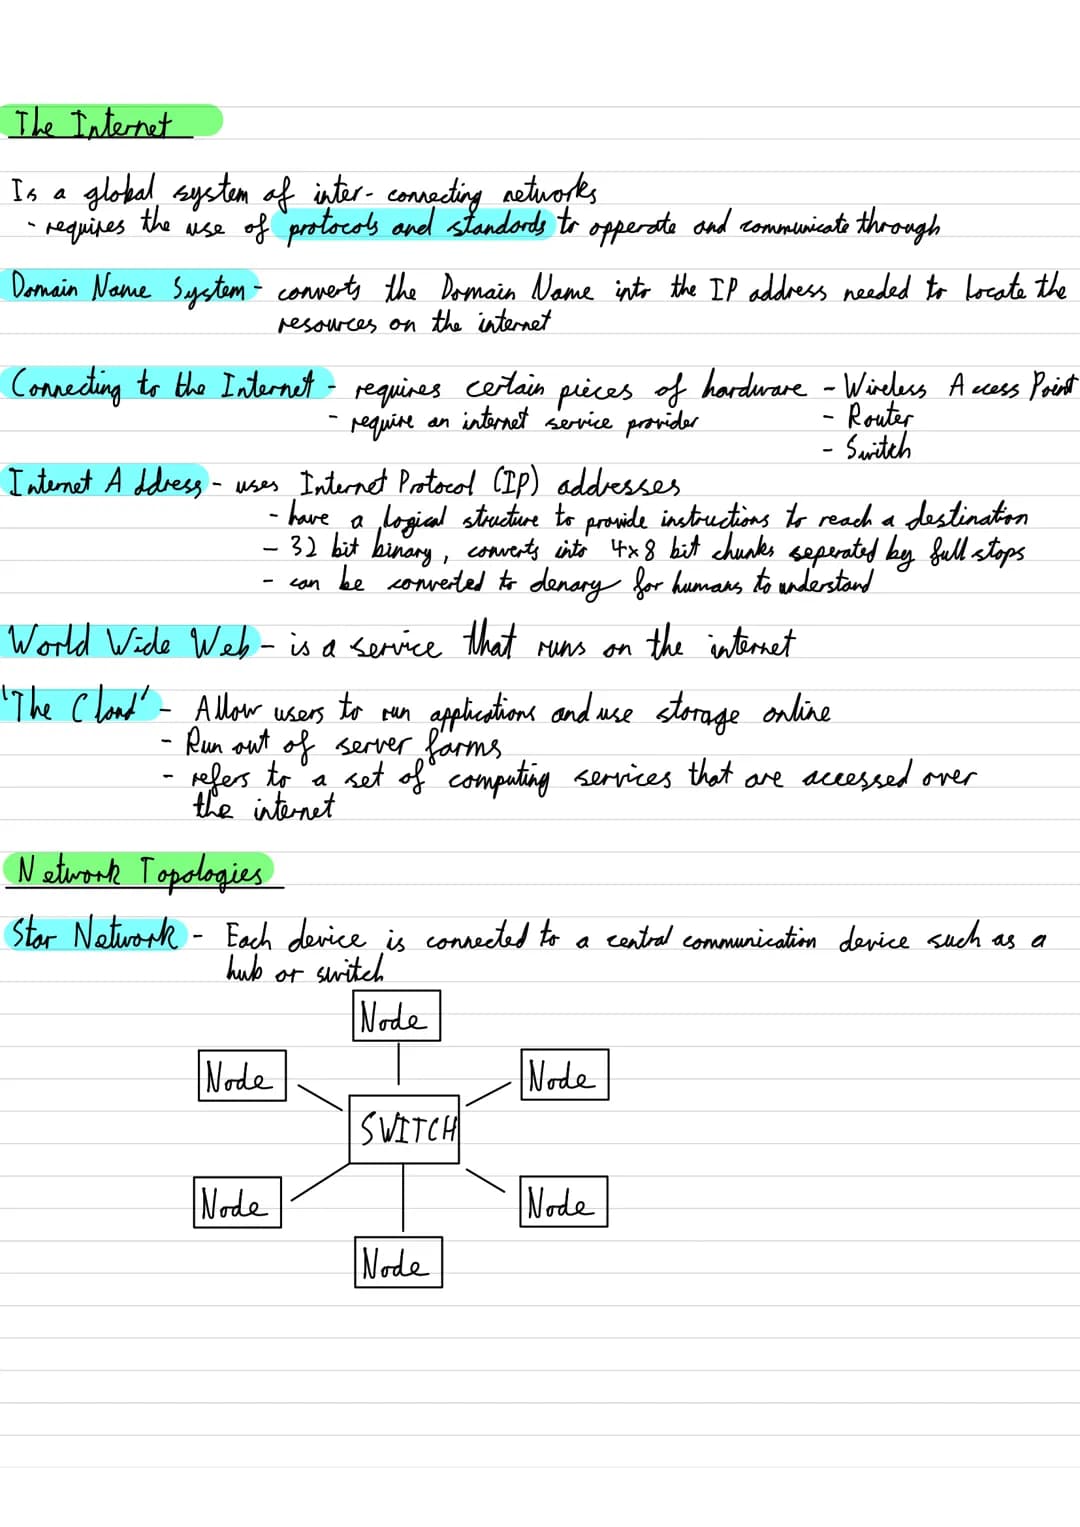 The Internet
Is a global system of inter-connecting networks
- requires the use of protocols and standards to opperate and communicate through
Domain Name System - converts the Domain Name into the IP address needed to locate the
resources on the internet
Connecting to the Internet - requires certain pieces of hardware - Wireless Access Point
- require an internet service provider - Router
- Switch
Internet Address - uses Internet Protocol (IP) addresses
- have a logical structure to provide instructions to reach a destination
- 32 bit binary, converts into 4x8 bit chunks seperated by full stops
- can be converted to denary for humans to understand
World Wide Web - is a service that runs on the internet
'The Cloud' - Allow users to run applications and use storage online
- Run out of server farms
- refers to a set of computing services that are accessed over
the internet
Network Topologies
Star Network - Each device is connected to a central communication device such as a
hub or switch
Node
Node Node
SWITCH
Node Node
Node